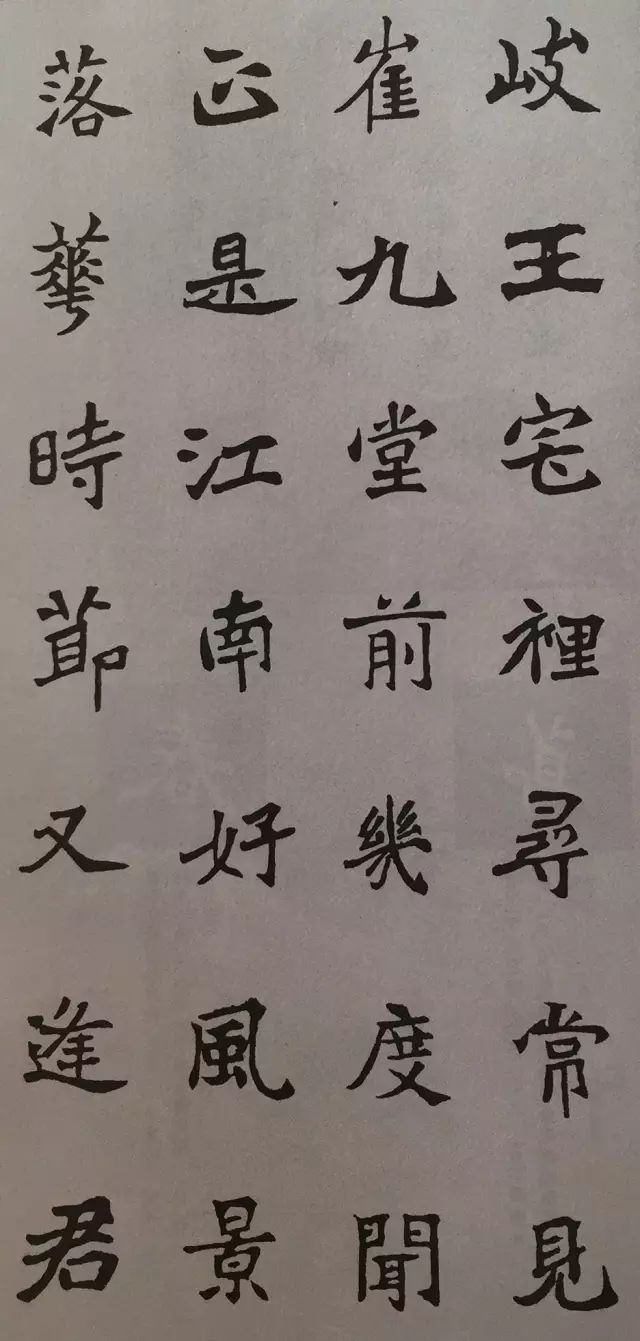 岐王宅裡尋常見
崔九堂前幾度聞
正是江南好風景
落華時節又逢君